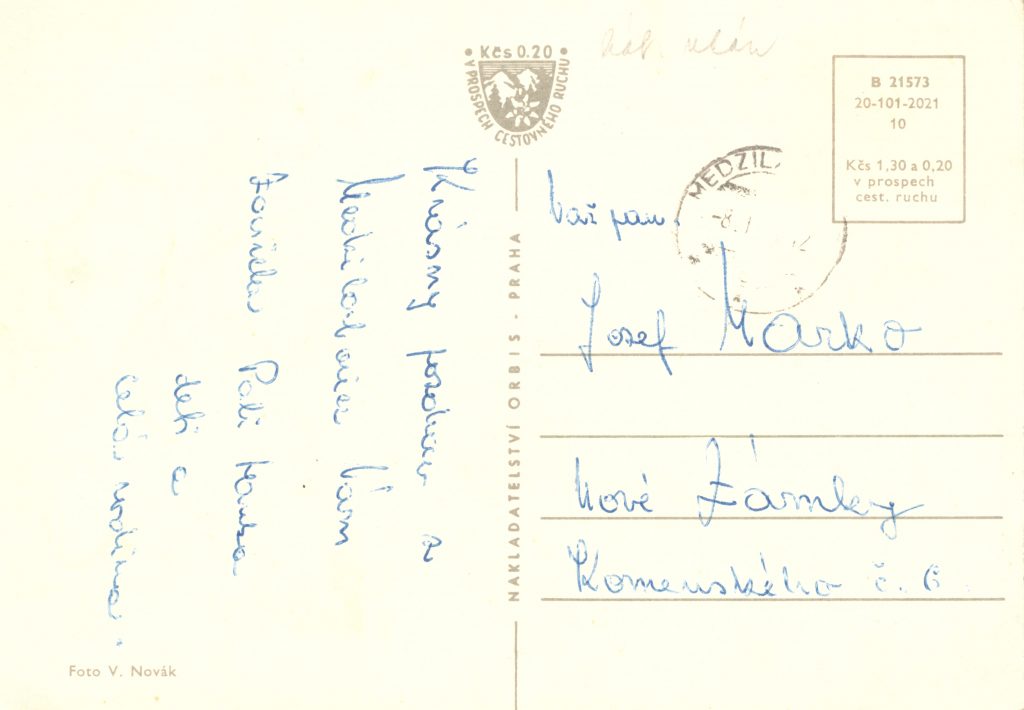 • Kčs 0.20 •
V PROSPECH CESTOVNÉHO RUCHU
B 21573
20-101-2021
10
Kčs 1,30 a 0,20
v prospech
cest. ruchu
MEDZIL
-8.1
Krásny pozdrav z
Vám
Pali Hanka
deti a
celá rodina.
NAKLADATELSTVÍ ORBIS - PRAHA
Váž. pan.
Josef Marko
Nové Zámky
Komenského č. 6
Foto V. Novák